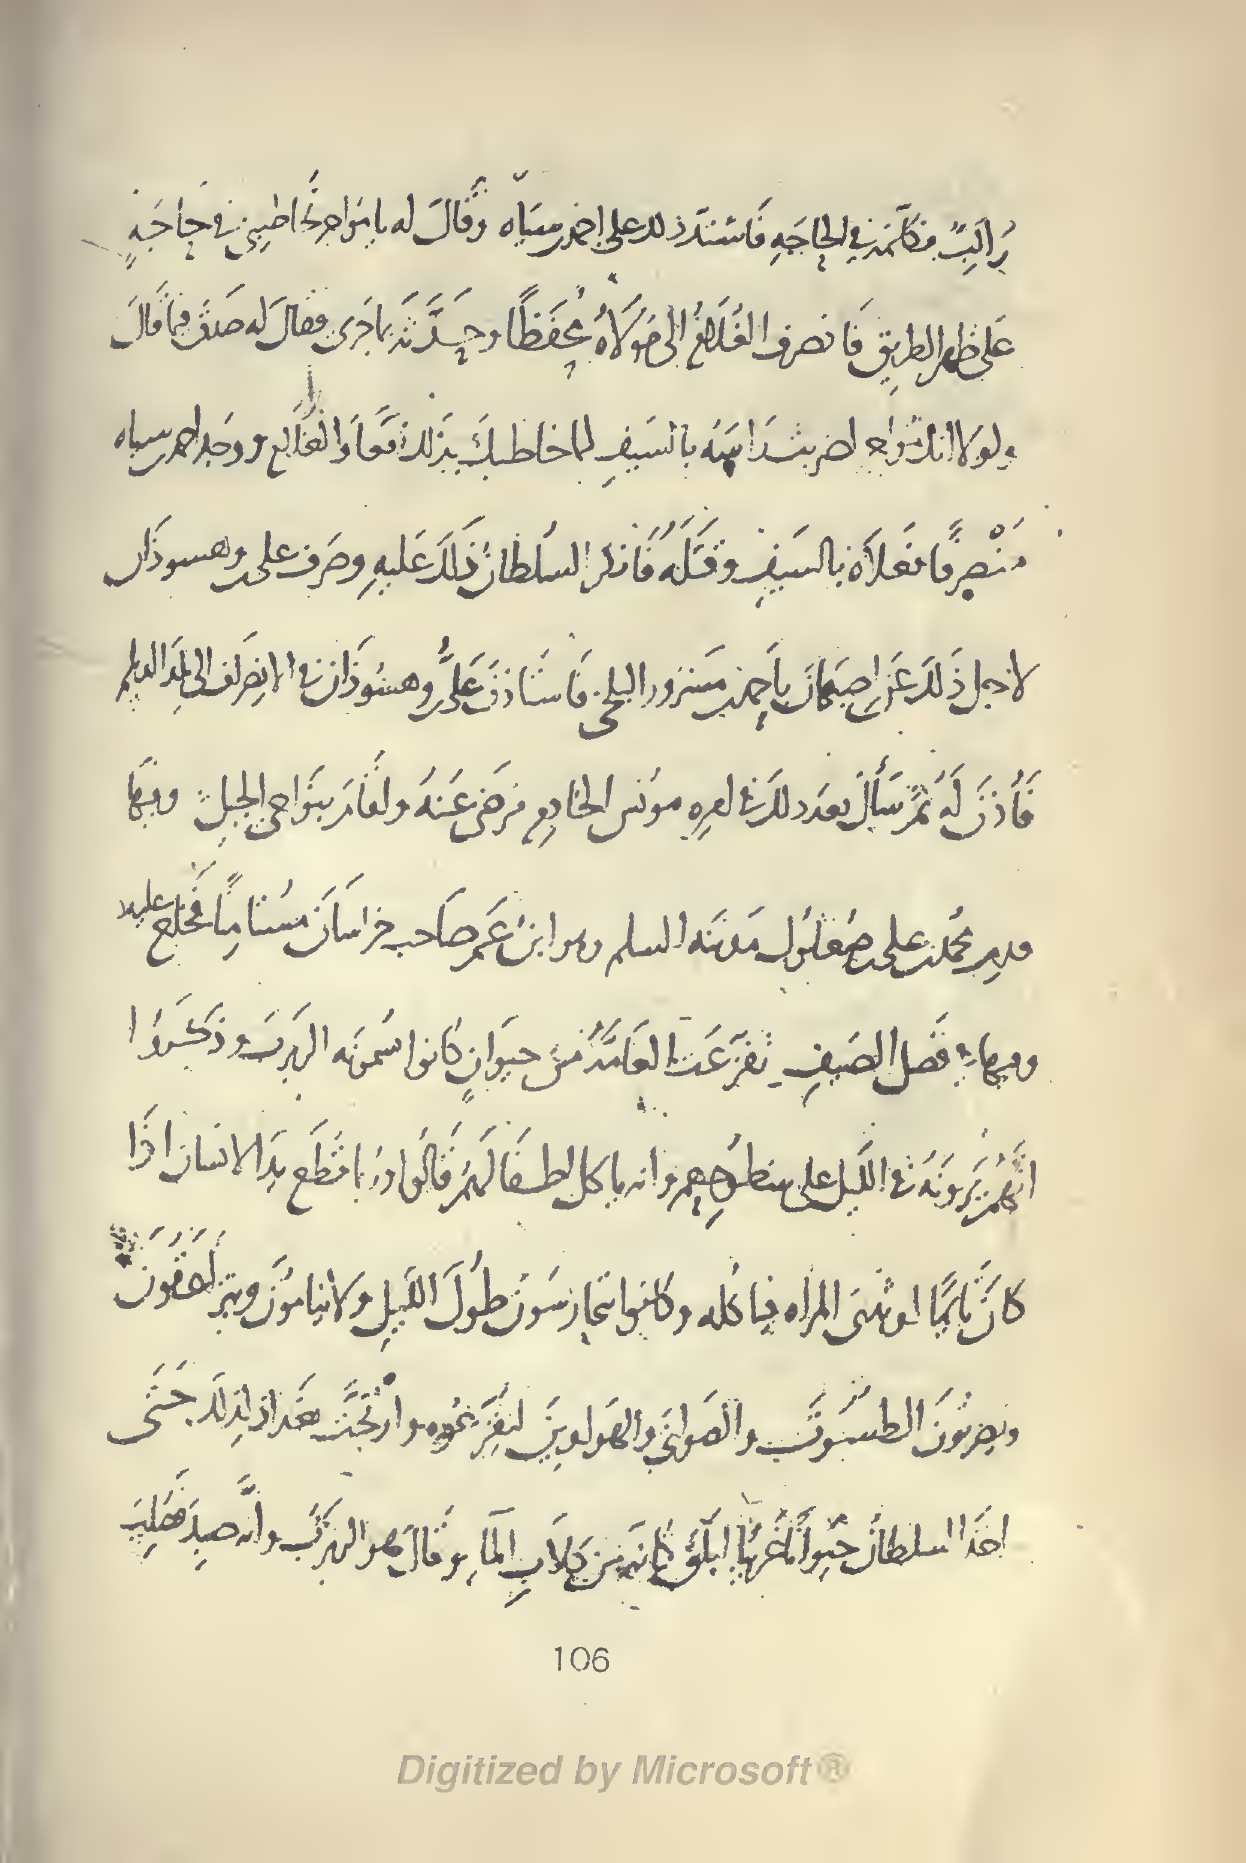 راكبٌ فكلّمه في الحاجَهِ فَاشتدّ ذلك على احمد بن سيَاه وقَالَ له يا مواجر تخاطبني في حاجَهٍ
عَلى ظهر الطريق فَانصرف الغُلَامُ الى مَوْلَاهُ مُحفَظًا وحدَّثه بما جرى فقال له صَدَقَ فيما قَالَ
ولولا انك مواجر لضربتَ رَاسَهُ بالسَيفِ لما خاطبكَ بذلكَ فعَادَ الغلام ووجد احمد بن سياه
مُنْصرفًا فعَلَاهُ بالسَيفِ وقتَلَهُ فَانكر السُلطانُ ذَلكَ عَليهِ وصَرف على بن وهسوذَان
لاجل ذَلكَ عَن اصبَهانَ باَحمد بن مَسْرور البلخى فَاستَاذنَ عَلىُّ بن وهسُوذَان في الانصِرَاف الى بلَد الديلم
فَأُذنَ لَهُ ثُمَّ سَأَلَ بعد ذلكَ في امرهِ مونس الخادم فرضىَ عَنهُ واقَامَ بنَواحى الجبلِ وفيهَا
قدم محمد بن على بن صُعْلوُك مَدينَه السلم وهو ابنُ عَم صَاحب خراسَانَ مُستامِنًا فخُلع عليه
وفيها في فَصل الصَيفِ تفَزَّعَت العَامَّةُ من حيوَانٍ كَانوا يسُمونَه الزبزب وذكَروُا
انَّهُمْ يَرونَهُ في اللَيل على سطُوحِهِم وانه ياكل اطفَالَهُمْ وقَالُوا رُبما قطَع يدَ الانسان اذَا
كانَ نايمًا او ثدىَ المراه فياكله وكانوا يتحارسُونَ طولَ الليلِ ولا ينامُونَ ويتزَاعقُونَ
ويضربُونَ الطسُوتَ والصَوانىَ والهَواوينَ ليُفَزّعوُه وارْتجَّت بغدَاد لذلكَ حتى
اخذَ السلطانُ حيوانًا غريبًا ابلَقَ كانه من كِلَابِ المآءِ وقَالَ هو الزبزبُ وانَّه صِيدَ فصُلِبَ
106
Digitized by Microsoft®